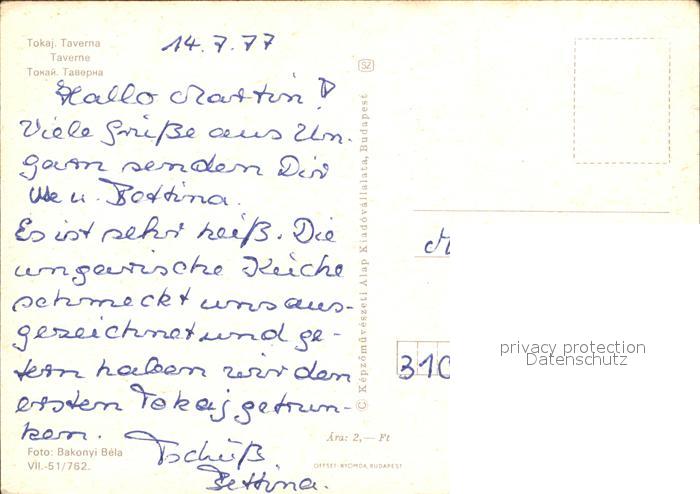 Tokaj. Taverna
Taverne
Токай. Таверна
14.7.77
Hallo Martin!
Viele Grüße aus Un-
garn senden Dir
Ute u. Bettina.
Es ist sehr heiß. Die
ungarische Küche
schmeckt uns aus-
gezeichnet und ge-
tern haben wir den
ersten Tokaj getrun-
ken. Tschüß
Bettina.
Foto: Bakonyi Béla
VII.-51/762.
SZ
© Képzőművészeti Alap Kiadóvállalata, Budapest
Ára: 2,— Ft
OFFSET-NYOMDA, BUDAPEST
M
310
privacy protection
Datenschutz